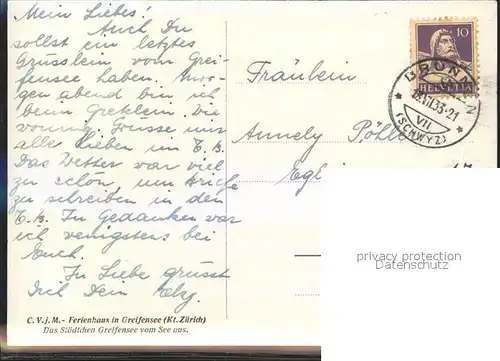 Mein Liebes!
Auch Du
sollst ein letztes
Grüsslein vom Grei-
fensee haben.
abend bin ich
beim Gretlein. Wie
Grüsse mir
alle Lieben im T. B.
Das Wetter war viel
zu schön, um Briefe
zu schreiben in den
T. B. In Gedanken war
ich wenigstens bei
Euch.
In Liebe grüsst
Dich Dein Elsy.
C. V. j. M. - Ferienhaus in Greifensee (Kt. Zürich)
Das Städtchen Greifensee vom See aus.
Fräulein
Annely
10
HELVETIA
BRUNNEN
VII.33-21
VII
(SCHWYZ)
privacy protection
Datenschutz